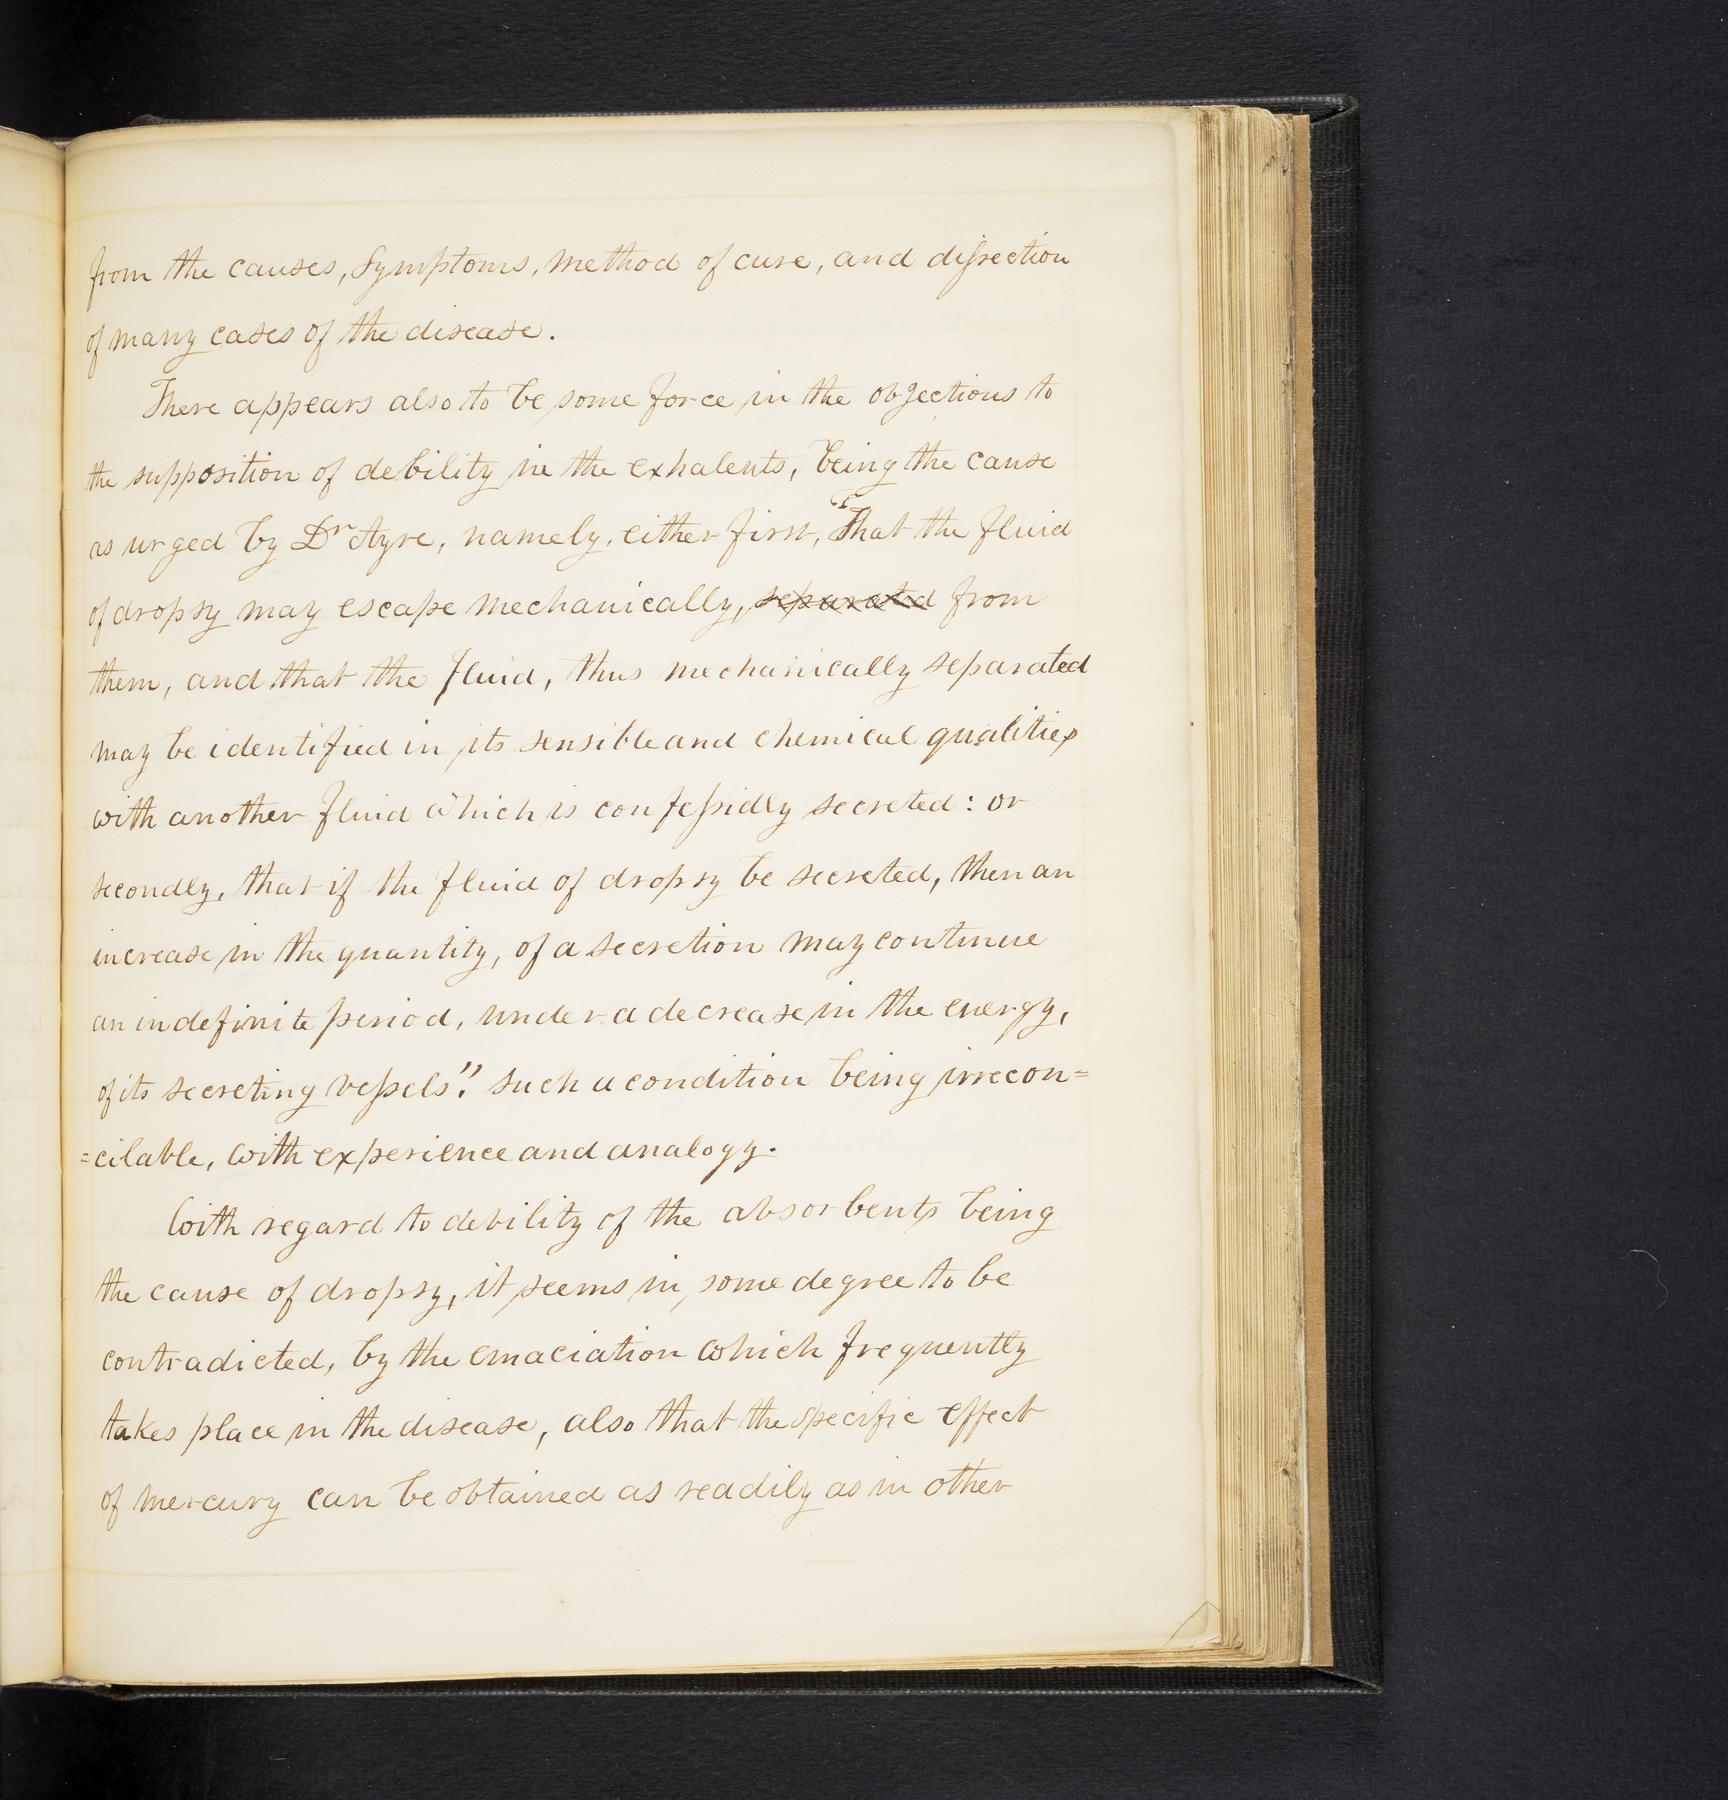 from the causes, symptoms, method of cure, and dissection
of many cases of the disease.
There appears also to be some force in the objections to
the supposition of debility in the exhalents, being the cause
as urged by Dr Ayre, namely, either first, "That the fluid
of dropsy may escape mechanically, separated from
them, and that the fluid, thus mechanically separated
may be identified in its sensible and chemical qualities
with another fluid which is confessidly secreted: or
secondly, that if the fluid of dropsy be secreted, then an
increase in the quantity, of a secretion may continue
an indefinite period, under a decrease in the energy,
of its secreting vessels". such a condition being irrecon=
=cilable, with experience and analogy.
With regard to debility of the absorbents being
the cause of dropsy, it seems in some degree to be
contradicted, by the emaciation which frequently
takes place in the disease, also that the specific effect
of mercury can be obtained as readily as in other